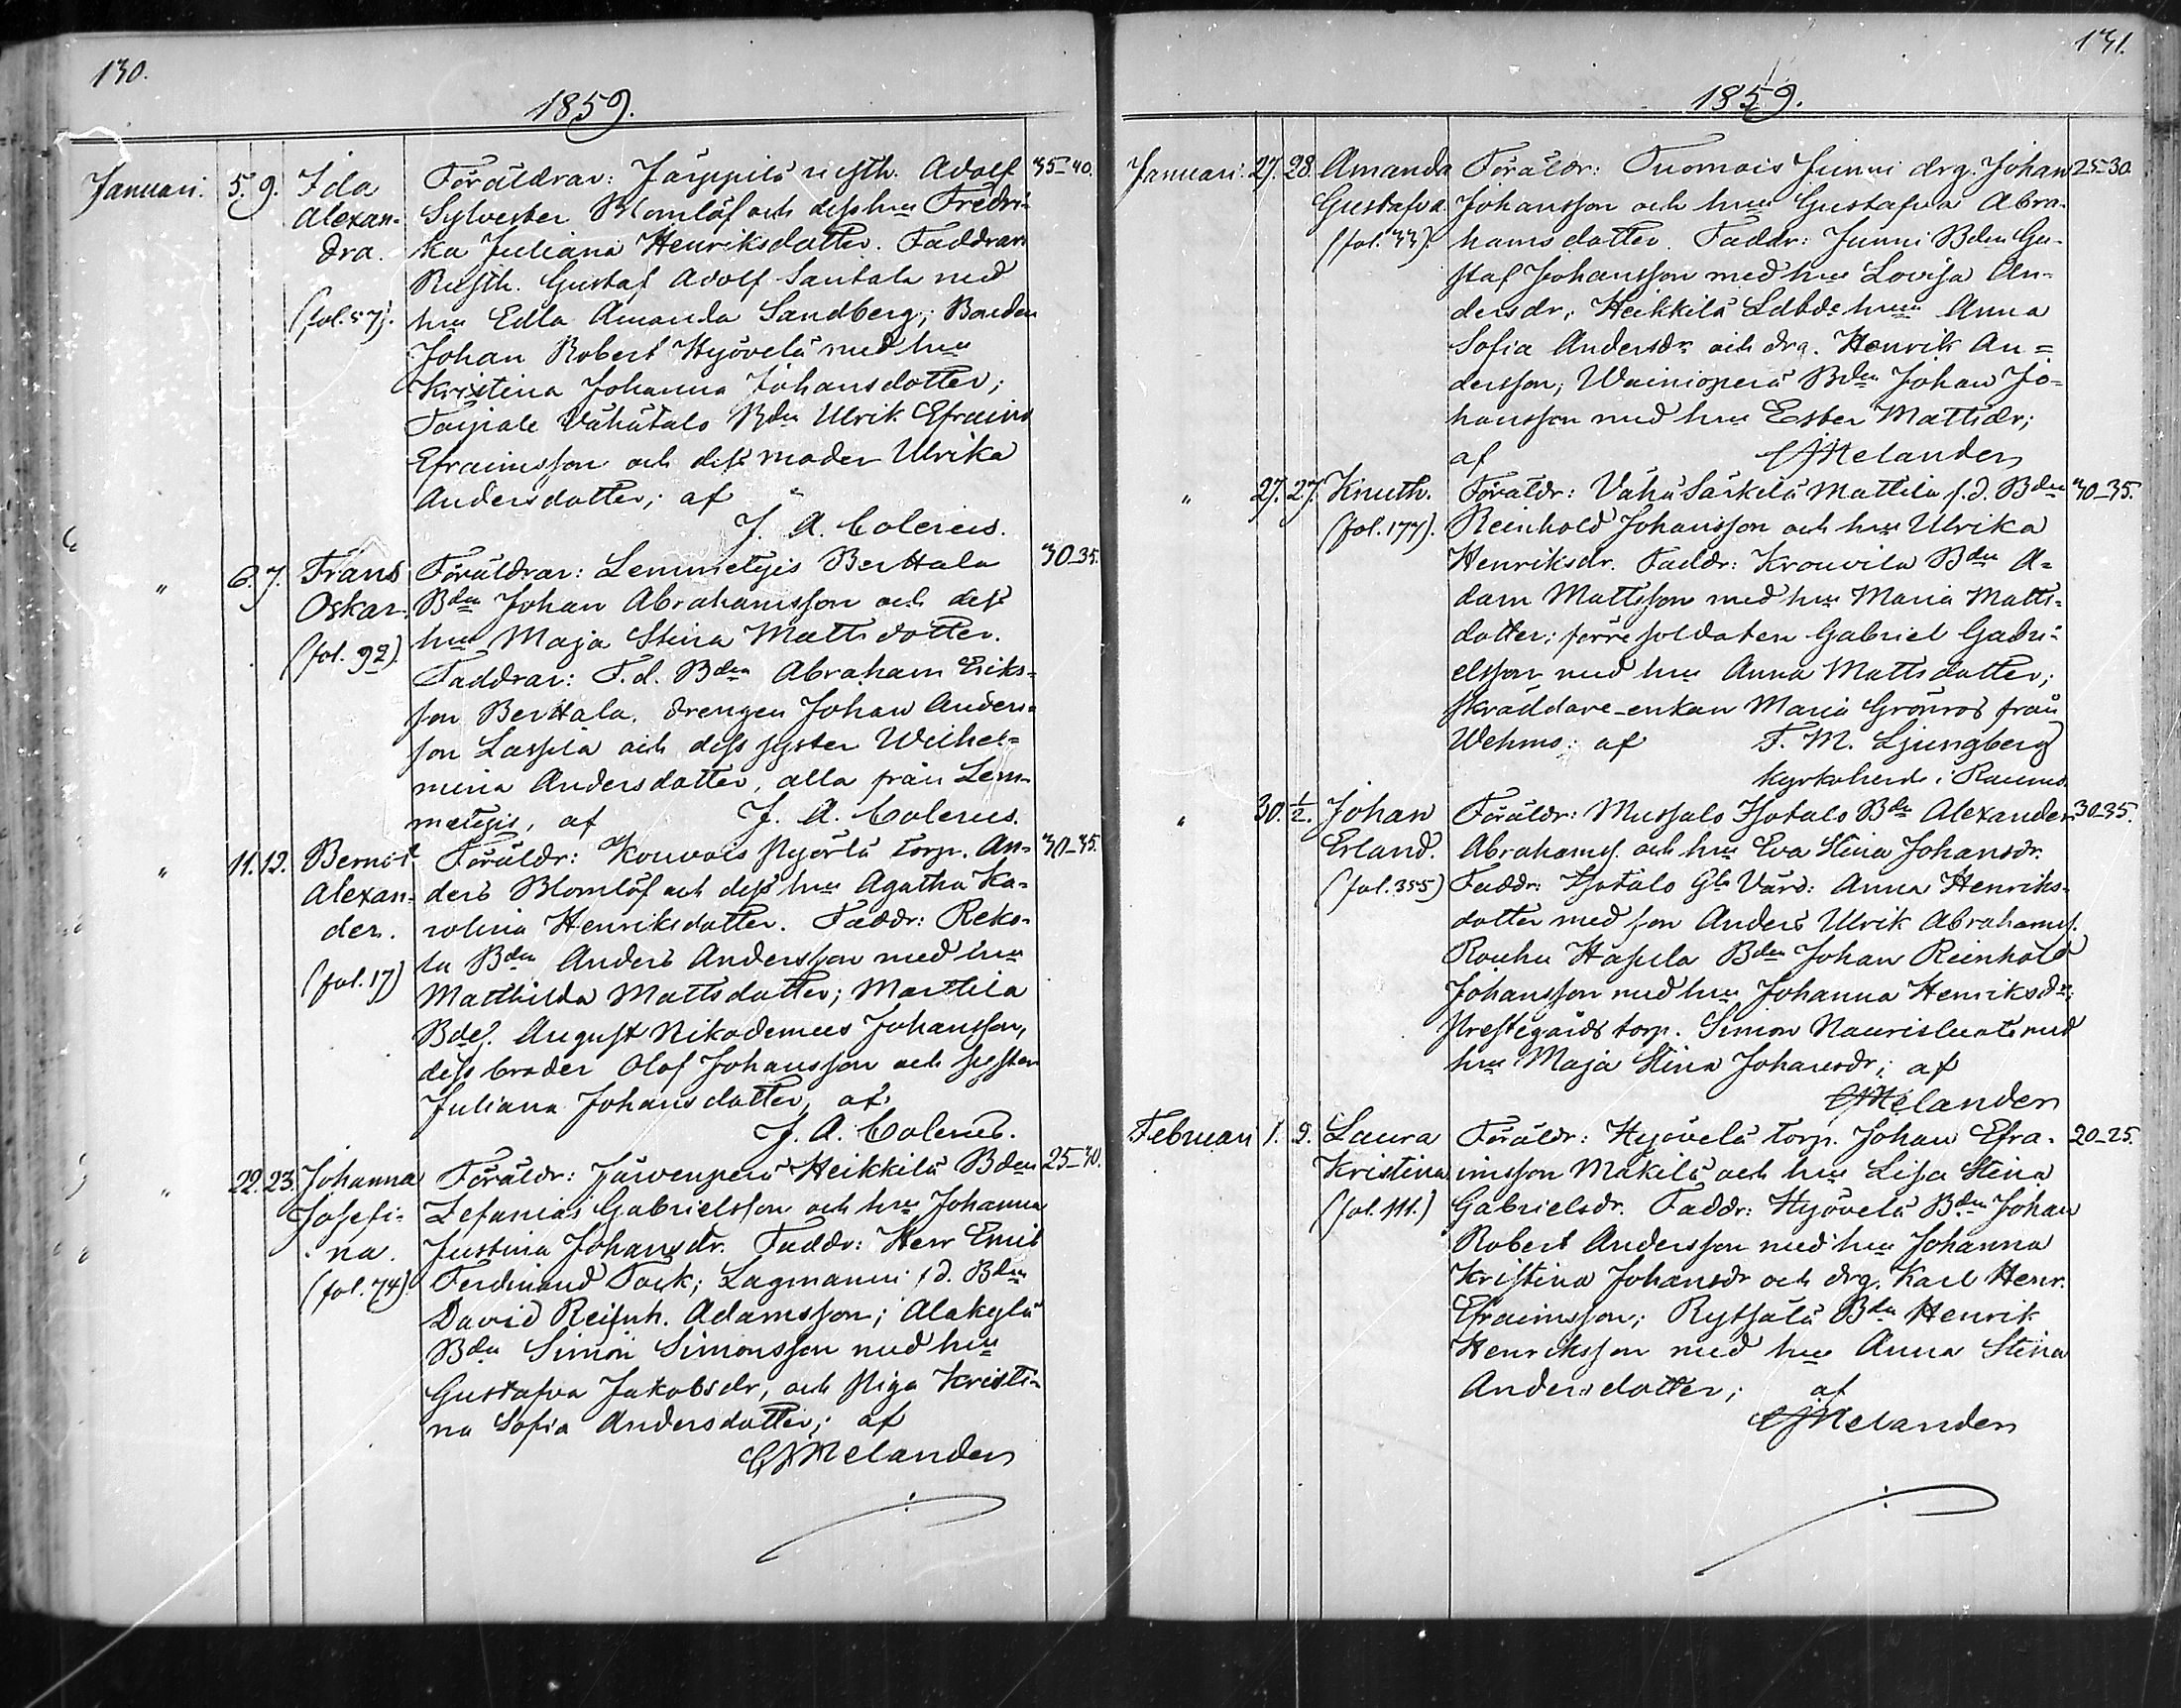 130.
1859.
Januari. 5. 9. Ida Föräldrar: Järppilä rusth. Adolf 35-40.
Alexan- Sylvester Blomlöf och dess hu Fredri-
dra. ka Juliana Henriksdotter. Faddrar:
Rusth. Gustaf Adolf Santala med
(fol. 57). hu Edla Amanda Sandberg; Bonden
Johan Robert Hyövelä med hu
Kristina Johanna Johansdotter;
Taipale Vähätalo Bdn Ulrik Efraims
Efraimsson och dess moder Ulrika
Andersdotter; af
J. A. Colerus.
" 6. 7. Frans Föräldrar: Lemmetyis Berttala 30-35.
Oskar. Bdn Johan Abrahamsson och dess
(fol. 92). hu Maja Stina Mattsdotter.
Faddrar: F.d. Bdn Abraham Eriks-
son Berttala, drengen Johan Anders-
son Lassila och dess syster Wilhel-
mina Andersdotter, alla från Lem-
metyis, af J. A. Colerus.
" 11. 12. Bernt Föräldr: Kouvois Pyörlä torp. An- 30-35.
Alexan- ders Blomlöf och dess hu Agatha Ka-
der. rolina Henriksdotter. Faddr: Reko-
(fol. 17) la Bdn Anders Andersson med hu
Matthilda Mattsdotter; Marttila
Bdes. August Nikodemus Johansson,
dess broder Olof Johansson och syster
Juliana Johansdotter, af
J. A. Colerus.
" 22. 23. Johanna Föräldr: Järvenperä Heikkilä Bden 25-30.
Josefi- Zefanias Gabrielsson och hu Johanna
na. Justina Johansdr. Faddr: Herr Emil
(fol. 74). Ferdinand Tock; Lagmanni f.d. Bdn
David Reinh. Adamsson; Alakylä
Bdn Simon Simonsson med hu
Gustafva Jakobsdr, och piga Kristi-
na Sofia Andersdotter; af
CJMelander
131.
1859.
Januari. 27. 28. Amanda Föräldr: Tuomois Junni drg. Johan 25-30.
Gustafva. Johansson och hu Gustafva Abra-
(fol. 33). hamsdotter. Faddr: Junni Bden Gu-
staf Johansson med hu Lovisa An-
dersdr; Heikkilä Ldbde hun Anna
Sofia Andersdr och drg. Henrik An-
dersson; Wainionperä Bdn Johan Jo-
hansson med hu Ester Mattsdr;
af CJMelander
" 27. 27. Knuth. Föräldr: Vähä Särkilä Mattila f.d. Bdn 30-35.
(fol. 177). Reinhold Johansson och hu Ulrika
Henriksdr. Faddr: Krouvila Bdn A-
dam Mattsson med hu Maria Matts-
dotter; förre soldaten Gabriel Gabri-
elsson med hu Anna Mattsdotter;
skräddare-enkan Maria Grönros från
Wehmo; af F. M. Ljungberg
kyrkoherde i Raumo.
" 30. 1/2. Johan Föräldr: Mussalo Isotalo Bdn Alexander 30-35.
Erland. Abrahams. och hu Eva Stina Johansdr.
(fol. 355) Faddr: Isotalo Gla Värd: Anna Henriks-
dotter med son Anders Ulrik Abrahams.
Rouhu Hapila Bdn Johan Reinhold
Johansson med hu Johanna Henriksdr;
Prestegårds torp. Simon Naurisluoto med
hu Maja Stina Johansdr; af
CJMelander
Februari 1. 9. Laura Föräldr: Hyövelä torp. Johan Efra- 20-25.
Kristina imsson Mäkilä och hu Lisa Stina
(fol. 111.) Gabrielsdr. Faddr: Hyövelä Bdn Johan
Robert Andersson med hu Johanna
Kristina Johansdr och drg. Karl Henr.
Efraimsson; Rytsälä Bdn Henrik
Henriksson med hu Anna Stina
Andersdotter; af
CJMelander